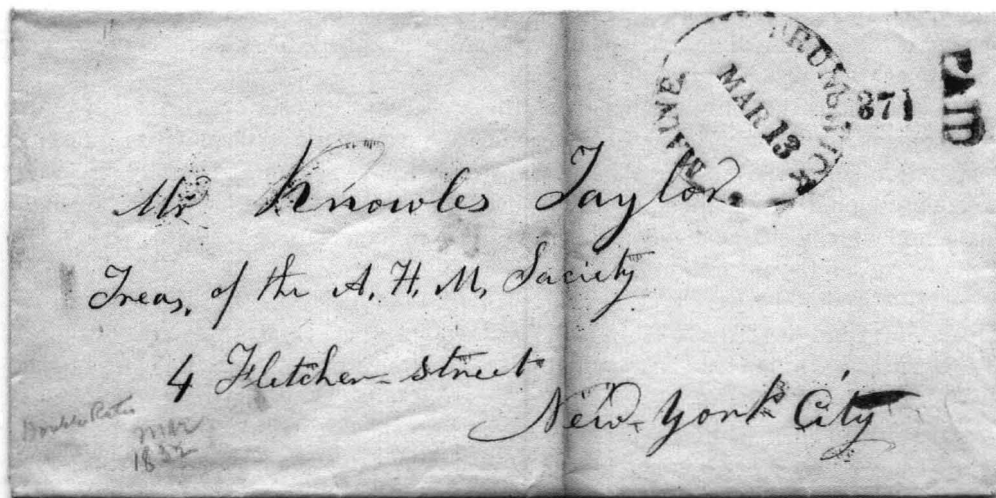 BRUNSWICK
MAINE
MAR 13
371
PAID
Mr Knowles Taylor
Treas, of the A. H. M, Society
4 Fletcher-street
New-York City
Double Rates
mar
1832